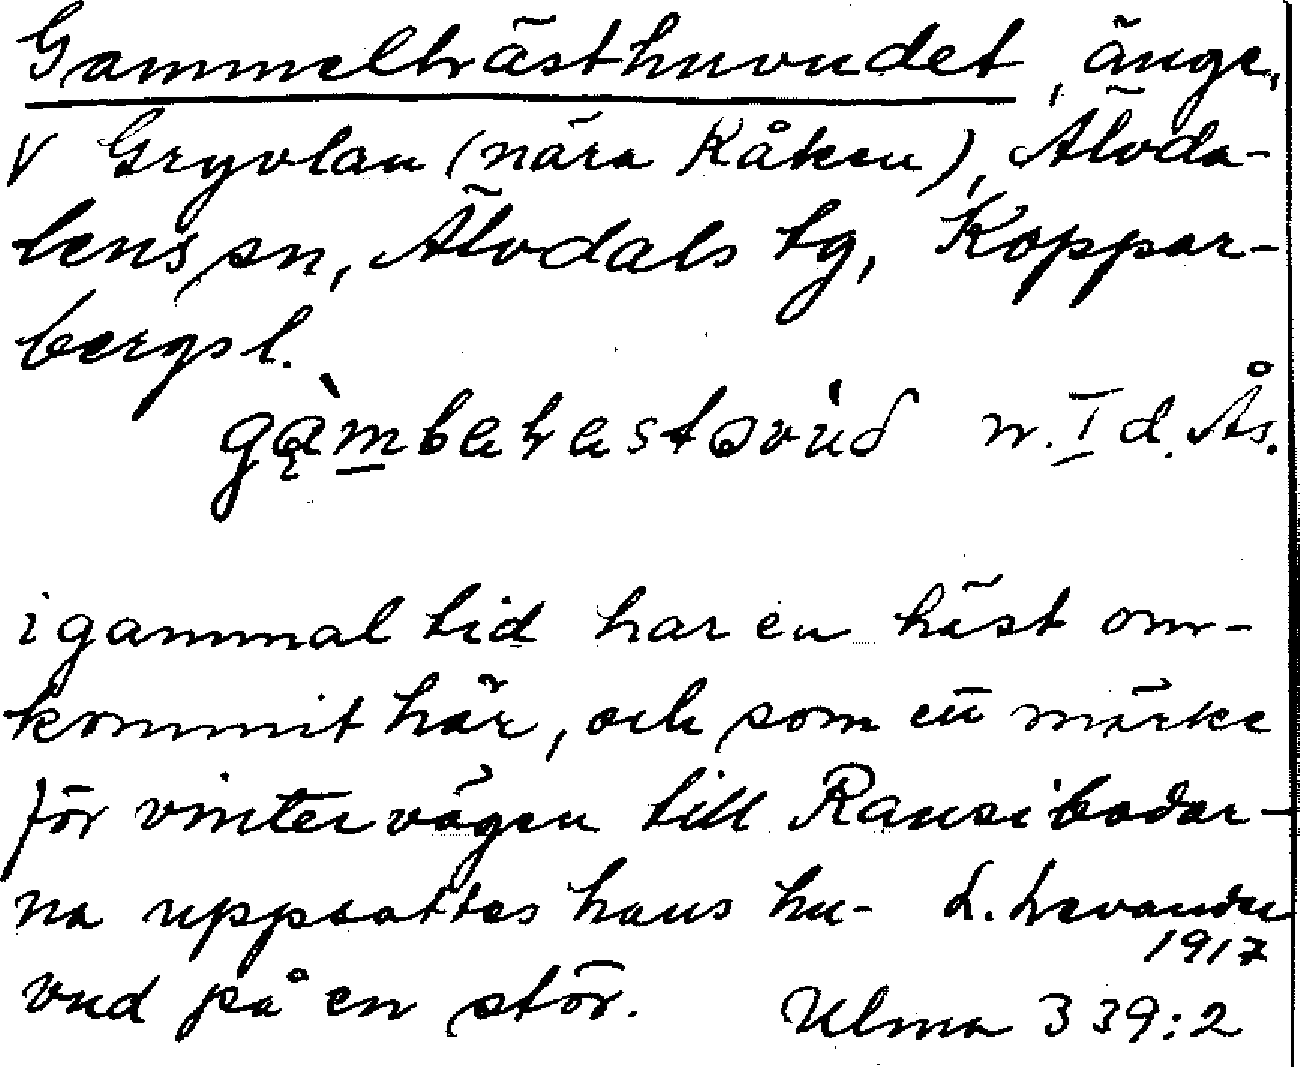 Gammelhästhuvudet, änge,
V Gryvlan (nära Kåken), Älvda-
lens sn, Älvdals tg, Koppar-
bergs l.
n. I d. Ås.
i gammal tid har en häst om-
kommit här, och som ett märke
för vintervägen till Ransibodar-
na uppsattes hans hu- L. Levander
1917
vud på en stör. Ulma 339:2